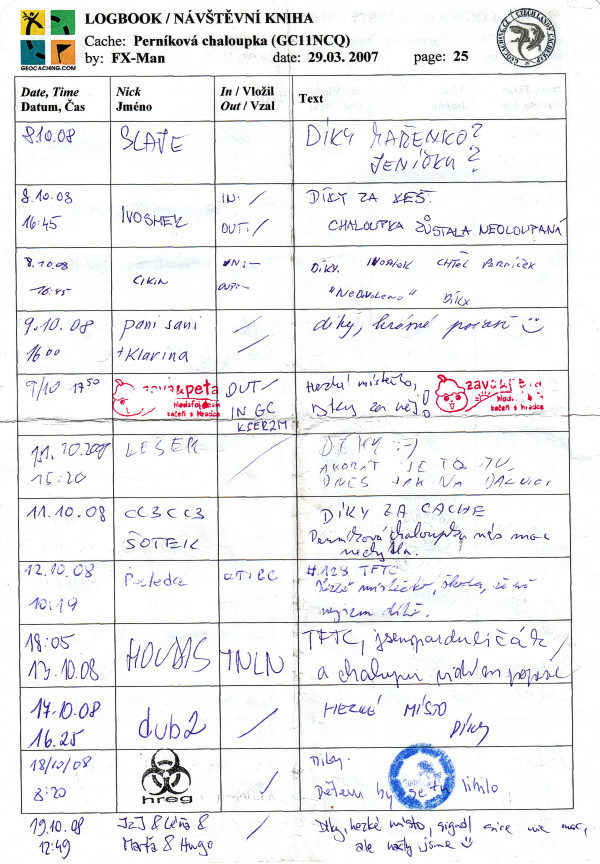 LOGBOOK / NÁVŠTĚVNÍ KNIHA
Cache: Perníková chaloupka (GC11NCQ)
by: FX-Man date: 29.03. 2007 page: 25
GEOCACHING.COM
Date, Time Nick In / Vložil Text
Datum, Čas Jméno Out / Vzal
8.10.08 SLAJE DÍKY MAŘENKO?
JENÍČKU?
8.10.08 IVOSHEK IN: / DÍKY ZA KEŠ.
16:45 OUT: / CHALOUPKA ZŮSTALA NEOLOUPANÁ
8.10.08 CIKIN IN:- DÍKY. IVOSHEK CHTĚL PERNÍČEK
16:45 OUT:- "NEDOVOLENO" DÍKY
9.10.08 pani sani / díky, krásné počasí
16 00 + Klarina /
9/10 17 50 OUT/ Hezké místečko,
IN GC Díky za něj!
hledači
kačeři s hradce
11.10.2008 LEŠEK / DÍKY :-)
15:20 AKORÁT JE TO TU
DNES JAK NA DÁLNICI
11.10.08 CC3CC3 DÍKY ZA CACHE
ŠOTEK Perníková chaloupka nás moc
nechytla.
12.10.08 #128 TFTC
10:19 Hezké místečko, škoda, že
díky.
18:05 HOUBIS INLN TFTC, jsem pardubičák
13.10.08 a chalupu vidím poprvé
17.10.08 dub2 / HEZKÉ MÍSTO
16.25 DÍKY
18/10/08 hreg / Díky.
8:20 Dětem by se tu líbilo.
19.10.08 JZJ & Léňa & / Díky, hezké místo, signál sice nic moc,
12:49 Marťa & Hugo ale našly jsme